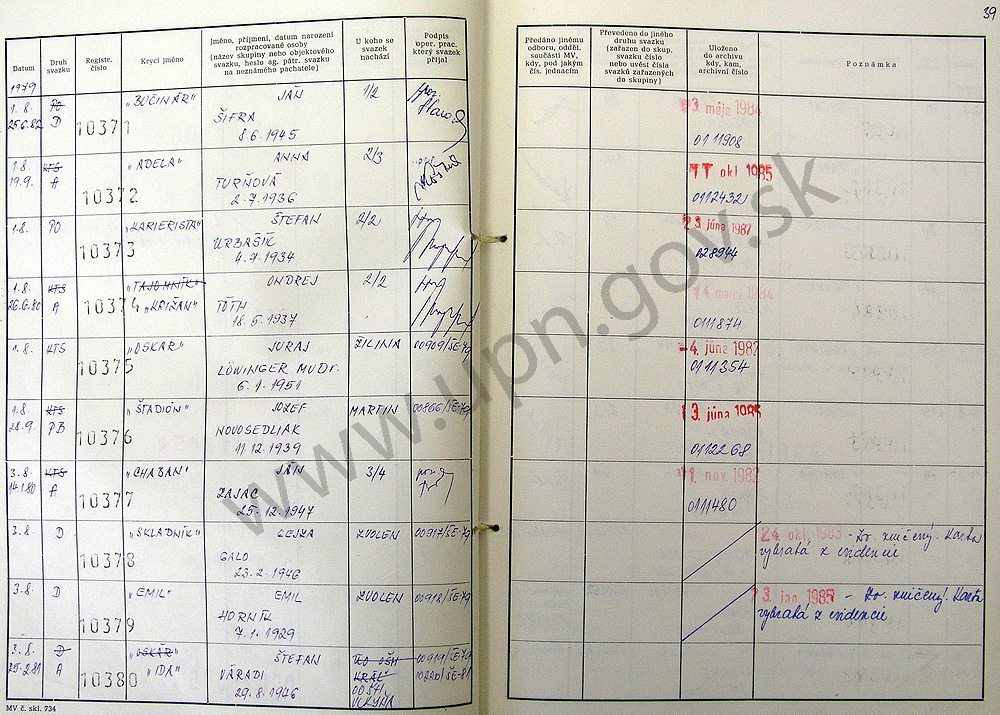 39
Datum
Druh svazku
Registr. číslo
Krycí jméno
Jméno, příjmení, datum narození rozpracované osoby
[název skupiny nebo objektového svazku, heslo ag. pátr. svazku na neznámého pachatele]
U koho se svazek nachází
Podpis oper. prac. který svazek přijal
Předáno jinému odboru, odděl. součásti MV, kdy, pod jakým čís. jednacím
Převedeno do jiného druhu svazku (zařazen do skup. svazku číslo nebo uvést čísla svazků zařazených do skupiny)
Uloženo do archivu kdy, kam, archivní číslo
Poznámka
1979
1.8. PO „BUČINÁR" JÁN 1/2
25.6.82 D 10371 ŠIFRA
8.6.1945
3. mája 1984
0111908
1.8. KTS „ADELA" ANNA 2/3
19.9. A 10372 TURŇOVÁ
2.7.1936
11 okt 1985
0112432
1.8. PO „KARIERISTA" ŠTEFAN 2/2
10373 URBAŠÍK
4.9.1934
23. júna 1987
028944
1.8. KTS „TAJOMNÍK" ONDREJ 2/2
26.6.80 A 10374 „KRIŽAN" TÓTH
18.5.1937
14 marca 1984
0111874
1.8. KTS „OSKAR" JURAJ ŽILINA 00909/ŠE-79
10375 LÖWINGER MUDr.
6.1.1951
-4. júna 1982
0111354
1.8. KTS „ŠTADION" JOZEF MARTIN 00866/ŠE-79
28.9. PB 10376 NOVOSEDLIAK
11.12.1939
13. júna 1985
0112268
3.8. KTS „CHABAN" JÁN 3/4
14.1.80 A 10377 ZAJAC
25.12.1947
11 nov. 1982
0111480
3.8. D „SKLADNÍK" GEJZA ZVOLEN 00917/ŠE-79
10378 GALO
23.2.1946
24 okt. 1983 - Zv. zničený. Karta
vybratá z evidencie
3.8. D „EMIL" EMIL ZVOLEN 00918/ŠE-79
10379 HORNÍK
7.1.1929
23. jan 1985 - Zv. zničený. Karta
vybratá z evidencie
3.8. D „OSKÁR" ŠTEFAN 00919/ŠE-79
25.2.81 A 10380 „IDA" VÁRADI KRÁĽ
29.8.1946
MV č. skl. 734
www.upn.gov.sk